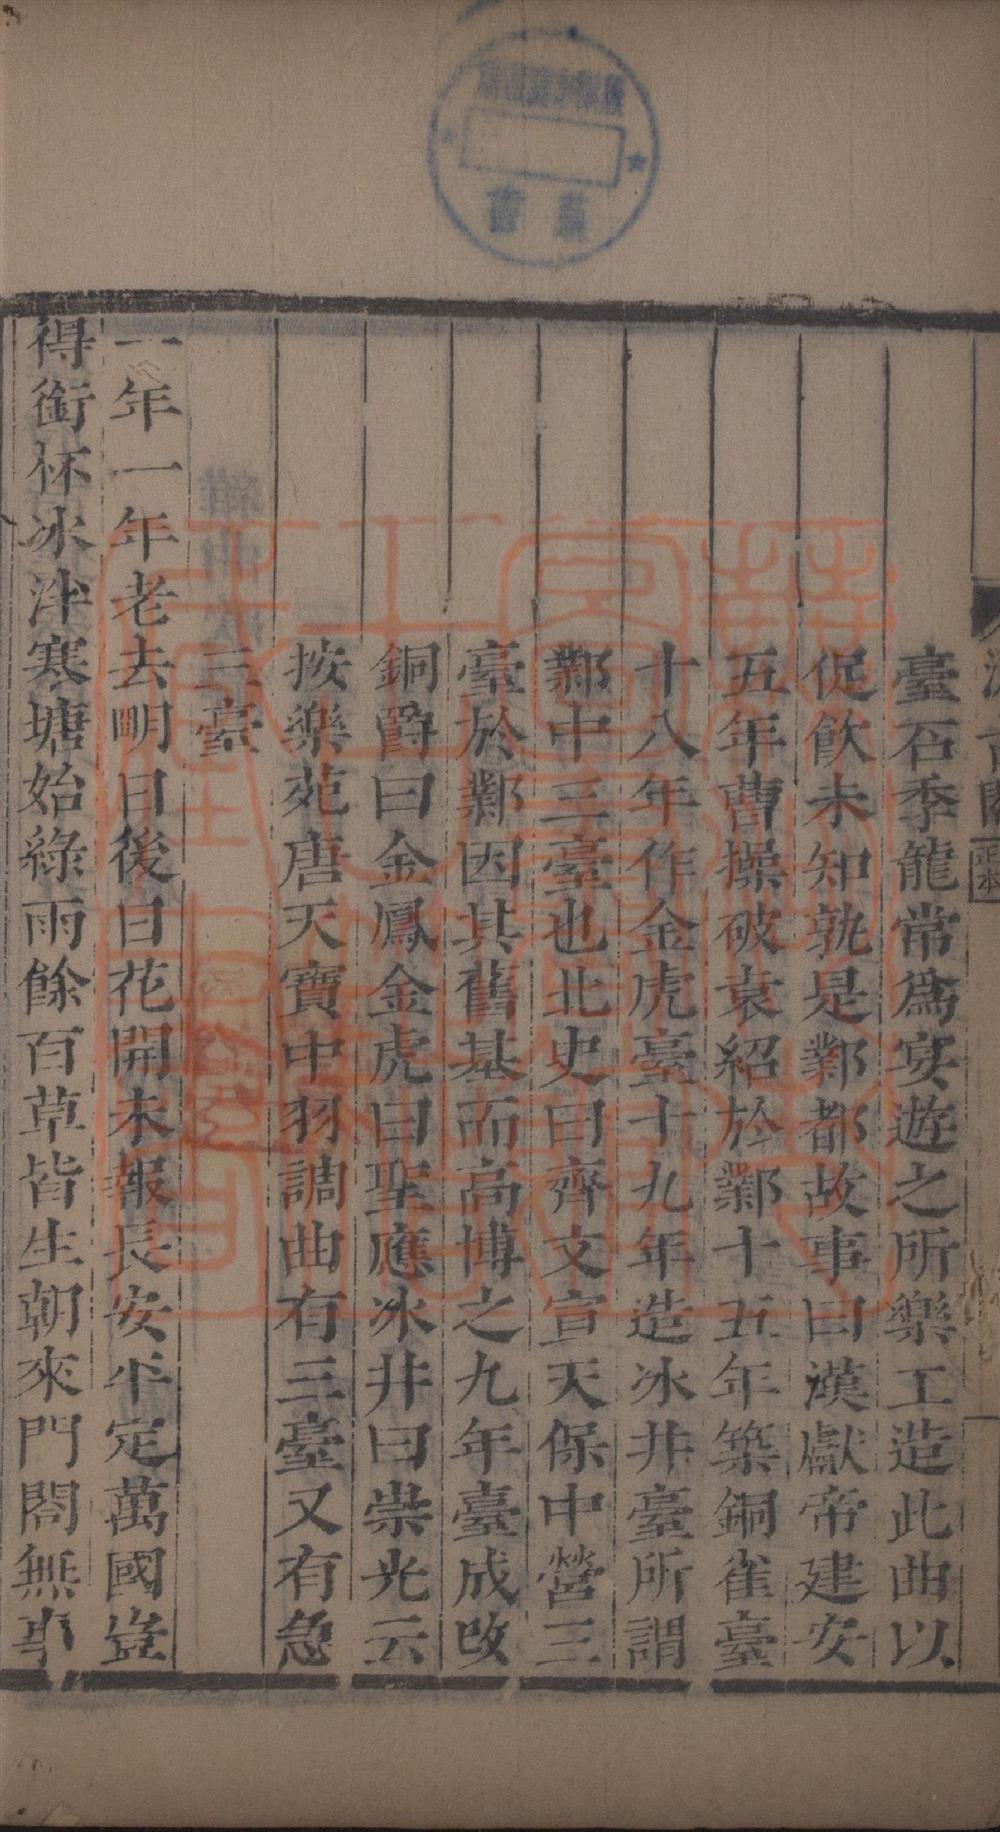 臺石季龍常爲宴遊之所樂工造此曲以
促飲未知孰是鄴都故事曰漢獻帝建安
五年曹操破袁紹於鄴十五年築銅雀臺
十八年作金虎臺十九年造冰井臺所謂
鄴中三臺也北史曰齊文宣天保中營三
臺於鄴因其舊基而高博之九年臺成改
銅爵曰金鳳金虎曰聖應冰井曰崇光云
按樂苑唐天寶中羽調曲有三臺又有急
三臺
一年一年老去明日後日花開未報長安平定萬國豈
得銜杯冰泮寒塘始綠雨餘百草皆生朝來門閤無事